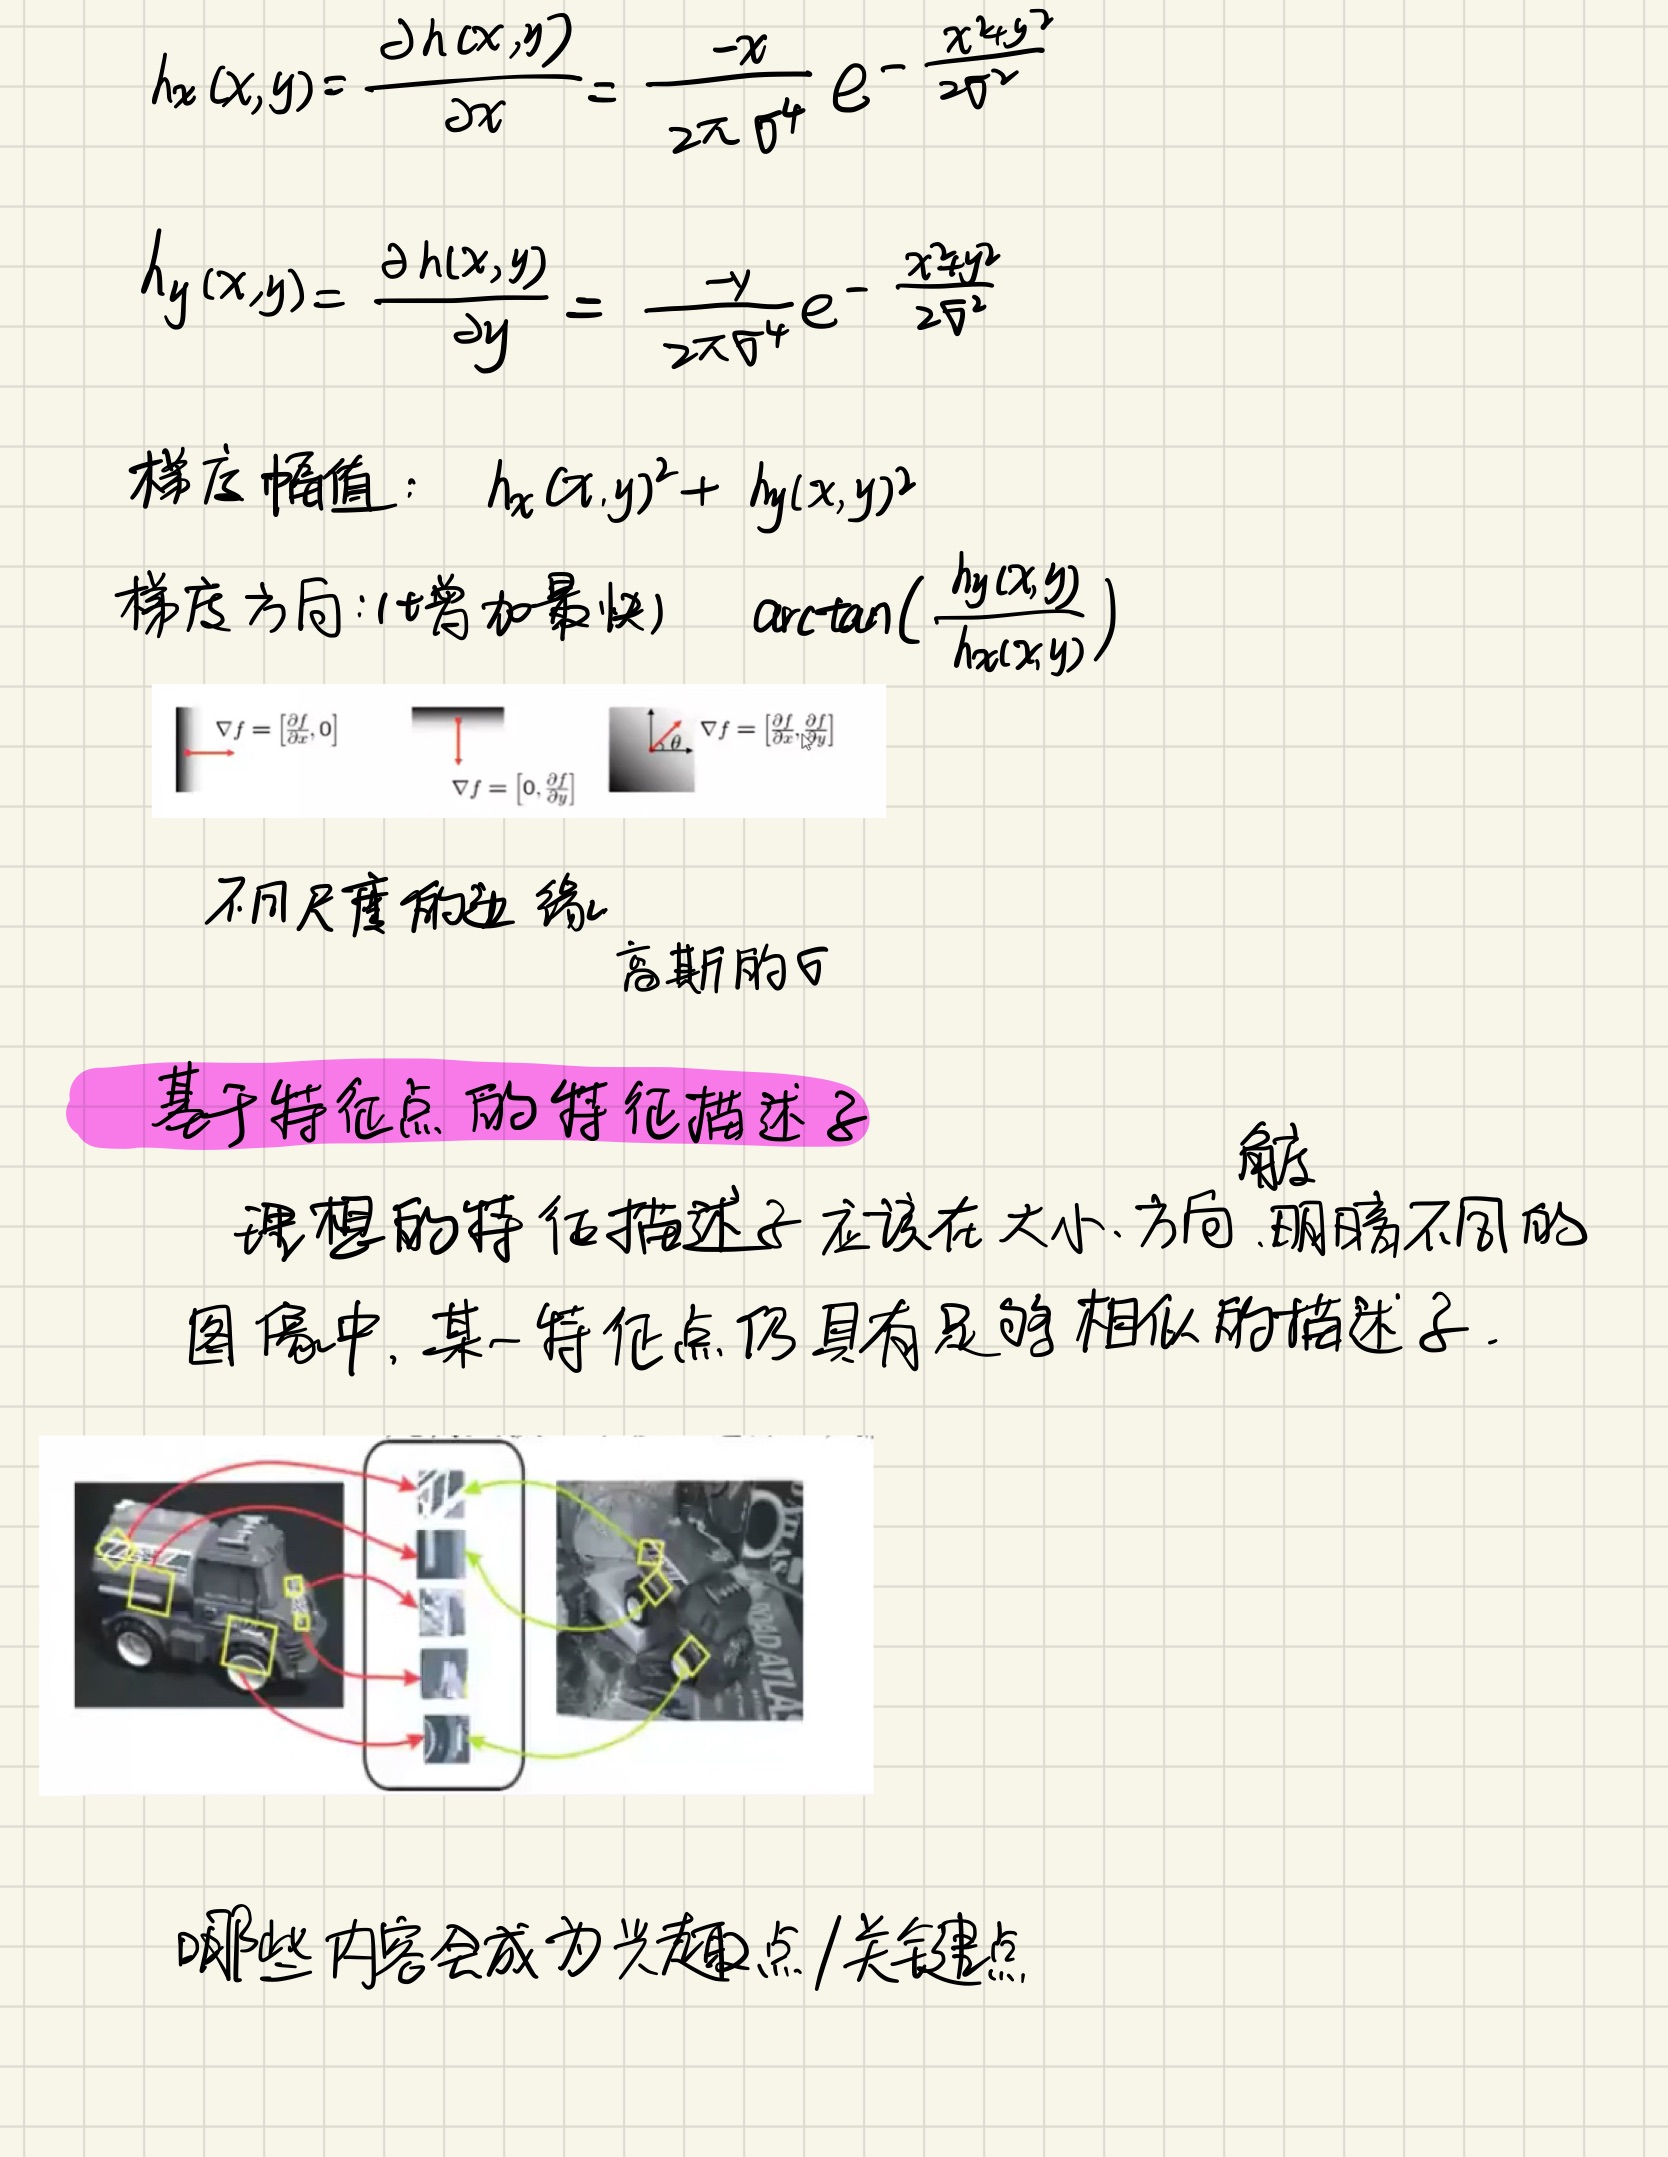 hx(x,y) = ∂h(x,y)/∂x = -x/(2πσ⁴) e^(-(x²+y²)/(2σ²))
hy(x,y) = ∂h(x,y)/∂y = -y/(2πσ⁴) e^(-(x²+y²)/(2σ²))
梯度幅值: hx(x,y)² + hy(x,y)²
梯度方向:(增加最快) arctan(hy(x,y)/hx(x,y))
∇f = [∂f/∂x, 0]
∇f = [0, ∂f/∂y]
θ ∇f = [∂f/∂x, ∂f/∂y]
不同尺度的边缘
高斯的σ
基于特征点的特征描述子
角度
理想的特征描述子应该在大小、方向、明暗不同的
图像中,某一特征点仍具有足够相似的描述子.
ROAD ATLAS
哪些内容会成为兴趣点/关键点